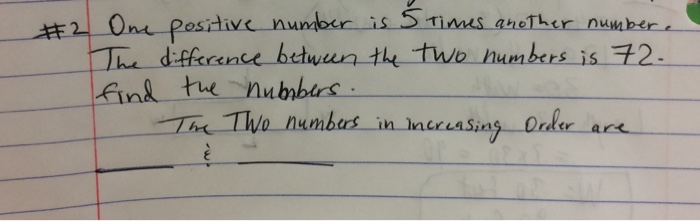 #2 One positive number is 5 times another number.
The difference between the two numbers is 72.
find the nubmbers.
The Two numbers in increasing Order are
&